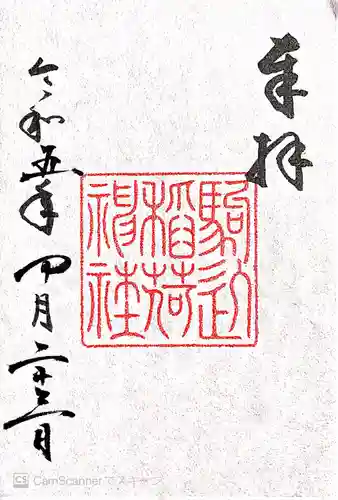 奉拝
駒込
稲荷
神社
令和五年四月二十二日
CS CamScannerでスキャン